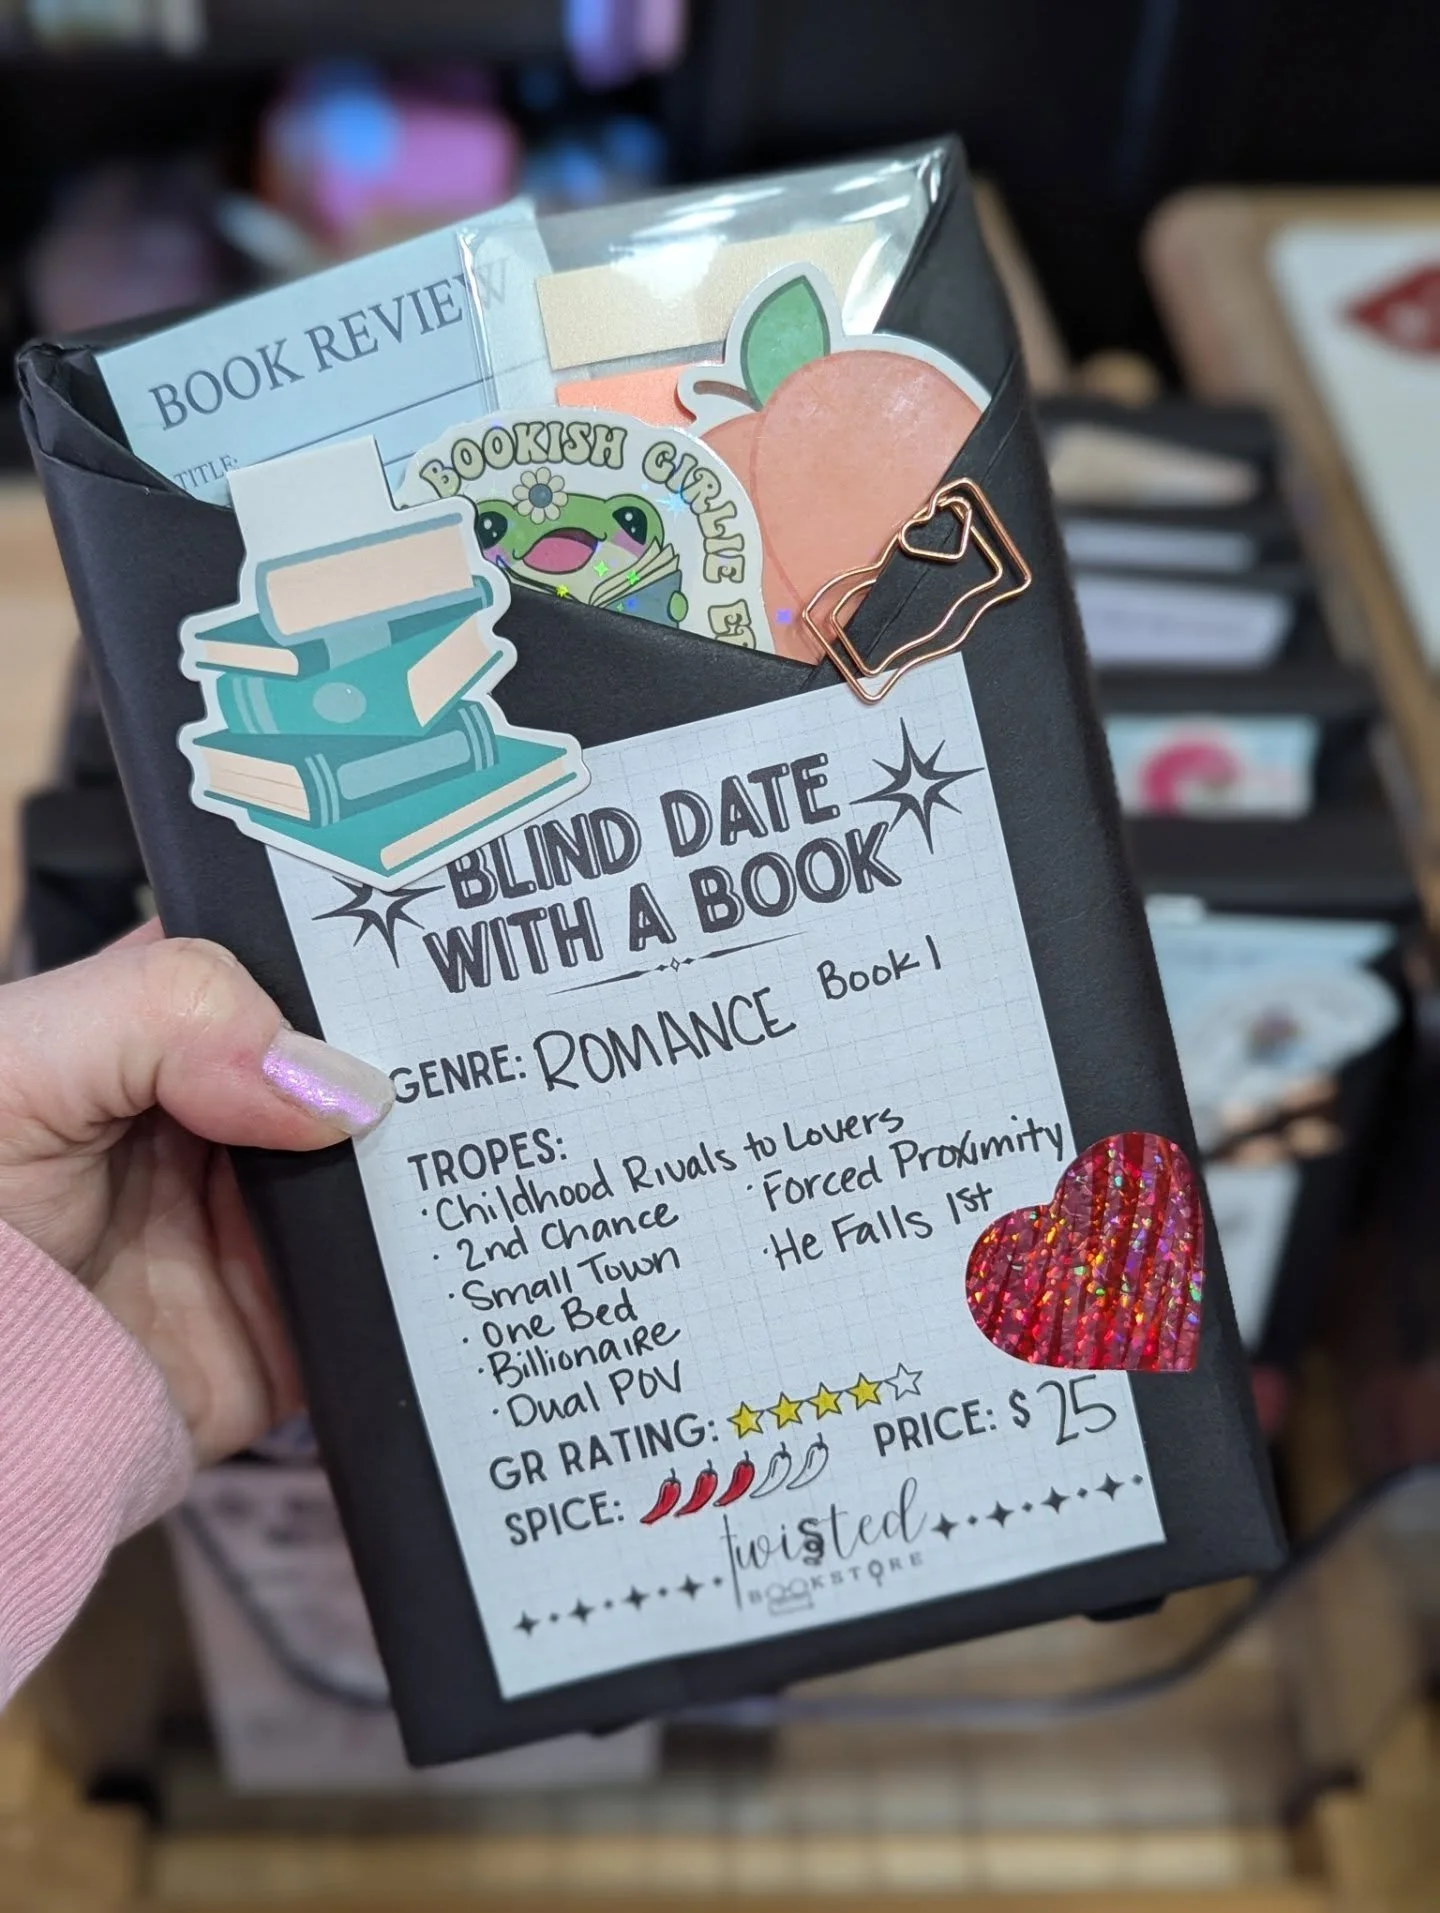 BOOK REVIEW
TITLE:
BOOKISH GIRLIE
BLIND DATE
WITH A BOOK
Book 1
GENRE: ROMANCE
TROPES:
· Childhood Rivals to Lovers
· 2nd Chance
· Small Town
· One Bed
· Billionaire
· Dual POV
· Forced Proximity
· He Falls 1st
GR RATING:
PRICE: $ 25
SPICE:
twisted
BOOKSTORE